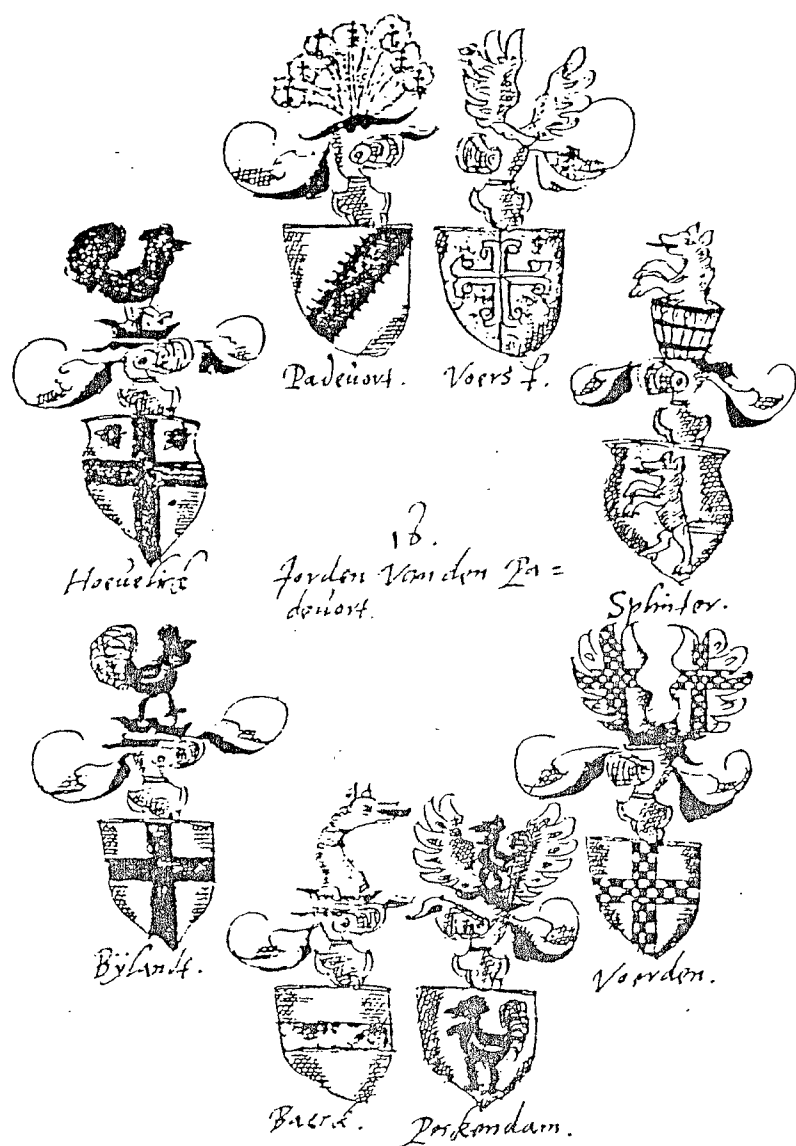 Padeuort. Voerst.
Hoeuelick
18.
Jorden Van den Pa=
deuort.
Splinter.
Bÿlandt.
Voerden.
Baerk. Peckendam.